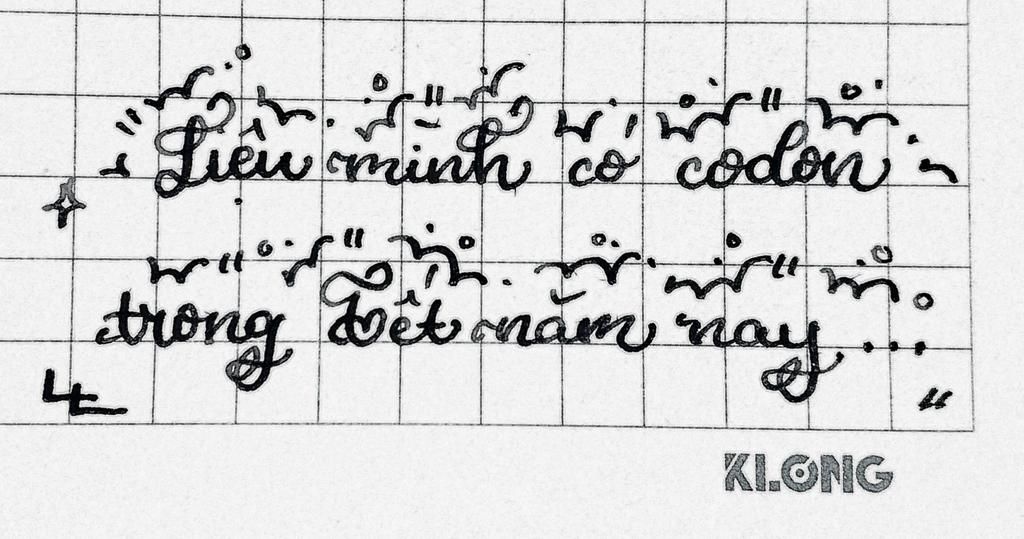 Liệu mình có codon
trong Tết năm nay...
KLONG